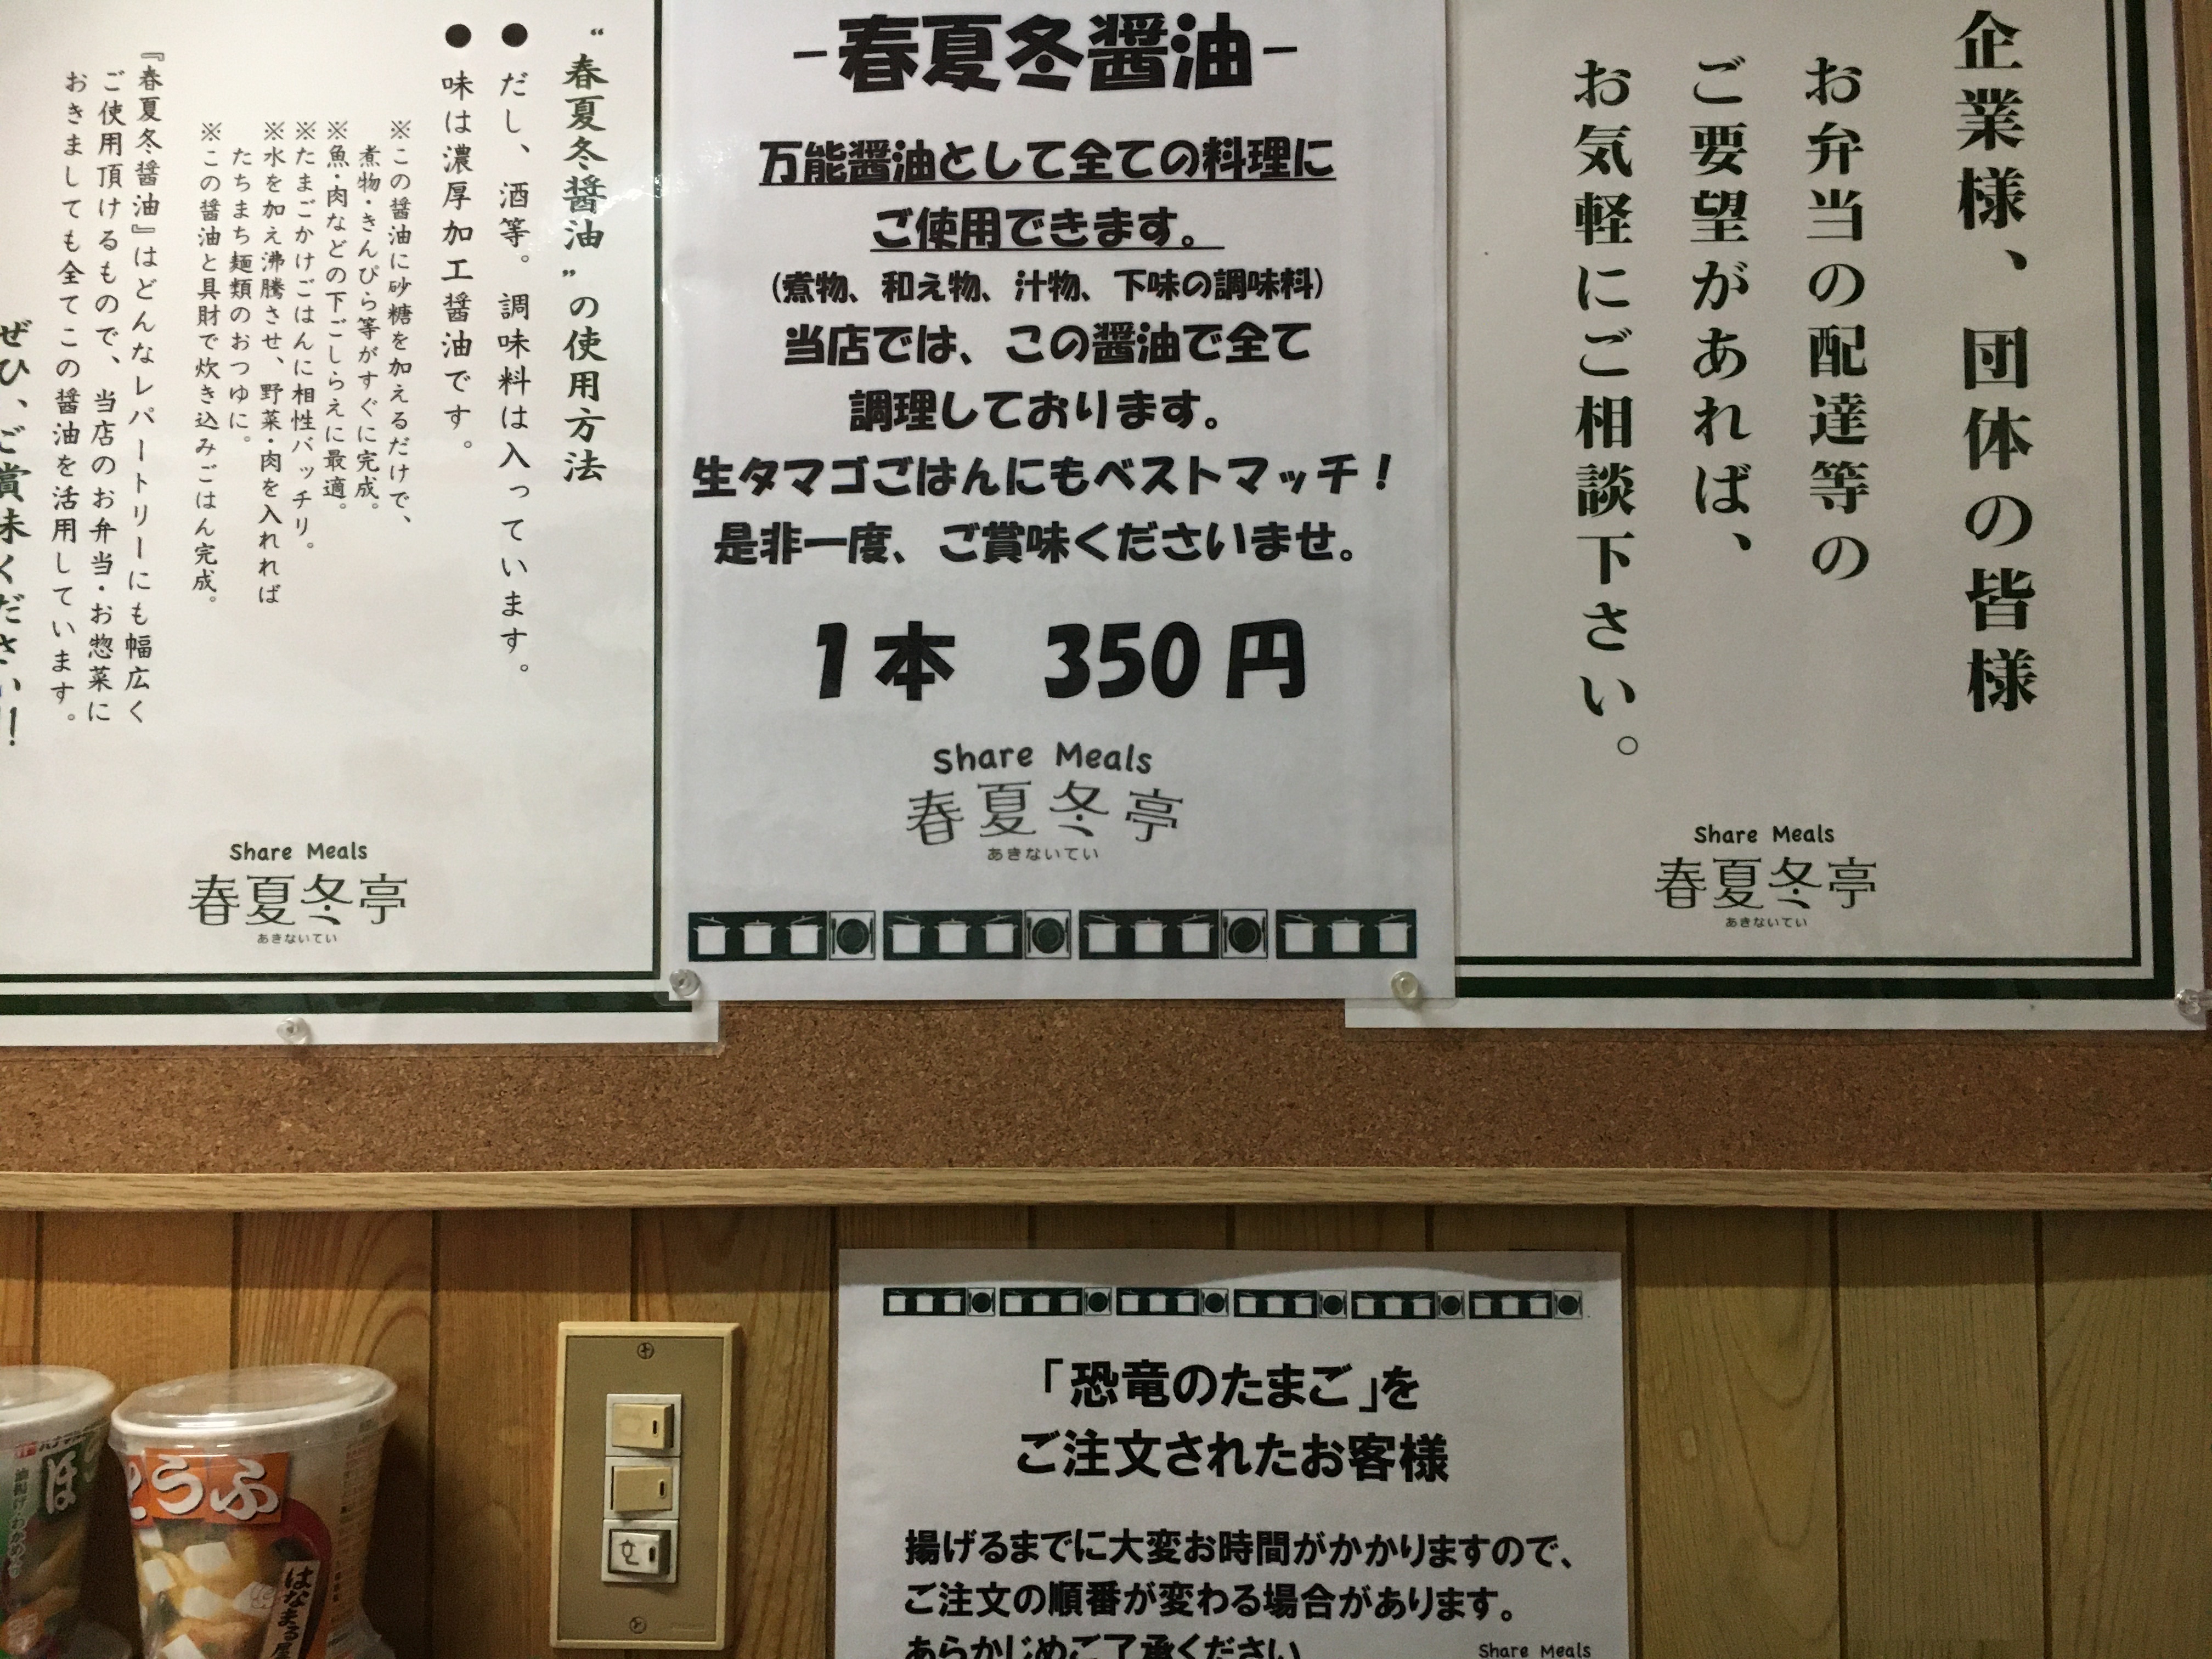 企業様、団体の皆様
お弁当の配達等の
ご要望があれば、
お気軽にご相談下さい。
Share Meals
春夏冬亭
あきないてい
－春夏冬醤油－
万能醤油として全ての料理に
ご使用できます。
(煮物、和え物、汁物、下味の調味料)
当店では、この醤油で全て
調理しております。
生タマゴごはんにもベストマッチ！
是非一度、ご賞味くださいませ。
1本 350円
Share Meals
春夏冬亭
あきないてい
“春夏冬醤油”の使用方法
● だし、酒等。調味料は入っています。
● 味は濃厚加工醤油です。
※この醤油に砂糖を加えるだけで、
煮物・きんぴら等がすぐに完成。
※魚・肉などの下ごしらえに最適。
※たまごかけごはんに相性バッチリ。
※水を加え沸騰させ、野菜・肉を入れれば
たちまち麺類のおつゆに。
※この醤油と具財で炊き込みごはん完成。
『春夏冬醤油』はどんなレパートリーにも幅広く
ご使用頂けるもので、当店のお弁当・お惣菜に
おきましても全てこの醤油を活用しています。
ぜひ、ご賞味ください！
Share Meals
春夏冬亭
あきないてい
「恐竜のたまご」を
ご注文されたお客様
揚げるまでに大変お時間がかかりますので、
ご注文の順番が変わる場合があります。
あらかじめご了承ください
Share Meals
とうふ
はなまる
ほ